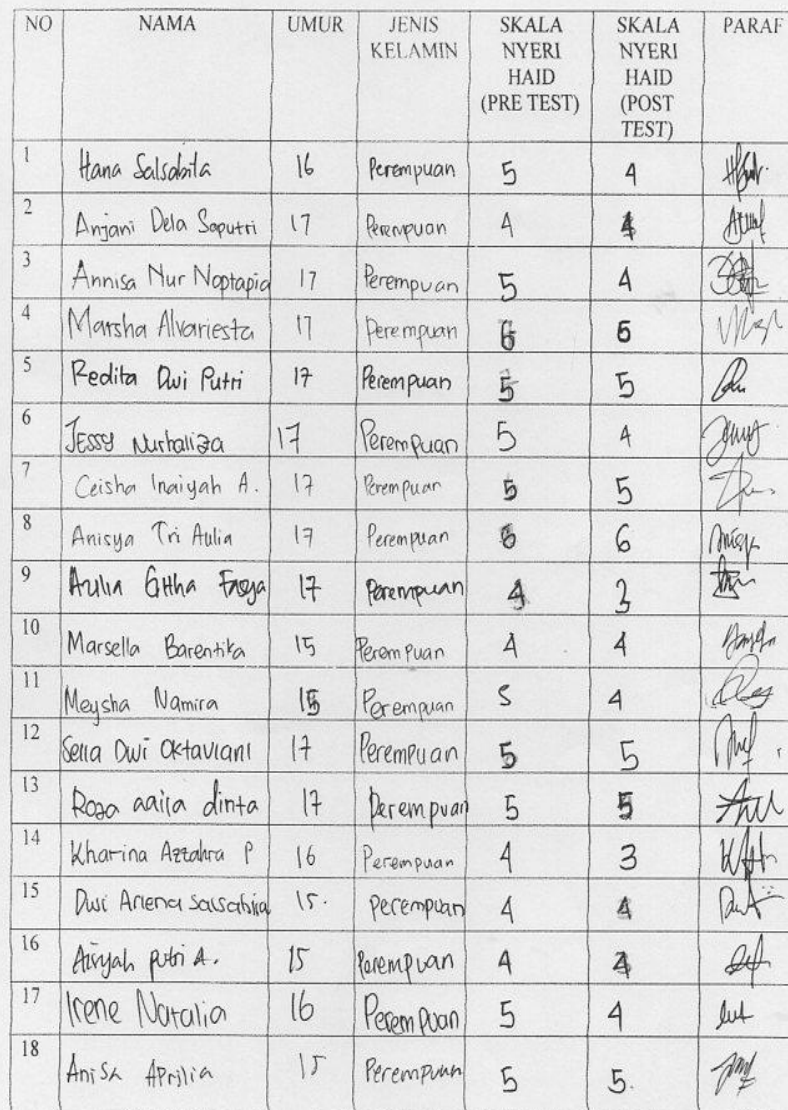 NO NAMA UMUR JENIS KELAMIN SKALA NYERI HAID (PRE TEST) SKALA NYERI HAID (POST TEST) PARAF
1 Hana Salsabila 16 Perempuan 5 4
2 Anjani Dela Saputri 17 Perempuan 4 4
3 Annisa Nur Noptapia 17 Perempuan 5 4
4 Marsha Alvariesta 17 Perempuan 6
5 Redita Dwi Putri 17 Perempuan 5 5
6 JESSY Nurhaliza 17 Perempuan 5 4
7 Ceisha Inaiyah A. 17 Perempuan 5 5
8 Anisya Tri Aulia 17 Perempuan 6
9 Aulia Githa 17 Perempuan 4 3
10 Marsella Barentika 15 Perempuan 4 4
11 Meysha Namira 15 Perempuan 5 4
12 Dwi Oktaviani 17 Perempuan 5 5
13 dinta 17 Perempuan 5 5
14 Kharina Azzahra P 16 Perempuan 4 3
15 Dwi 15. Perempuan 4 4
16 putri A. 15 Perempuan 4
17 Irene Natalia 16 Perempuan 5 4
18 Anisa Aprilia 15 Perempuan 5 5.